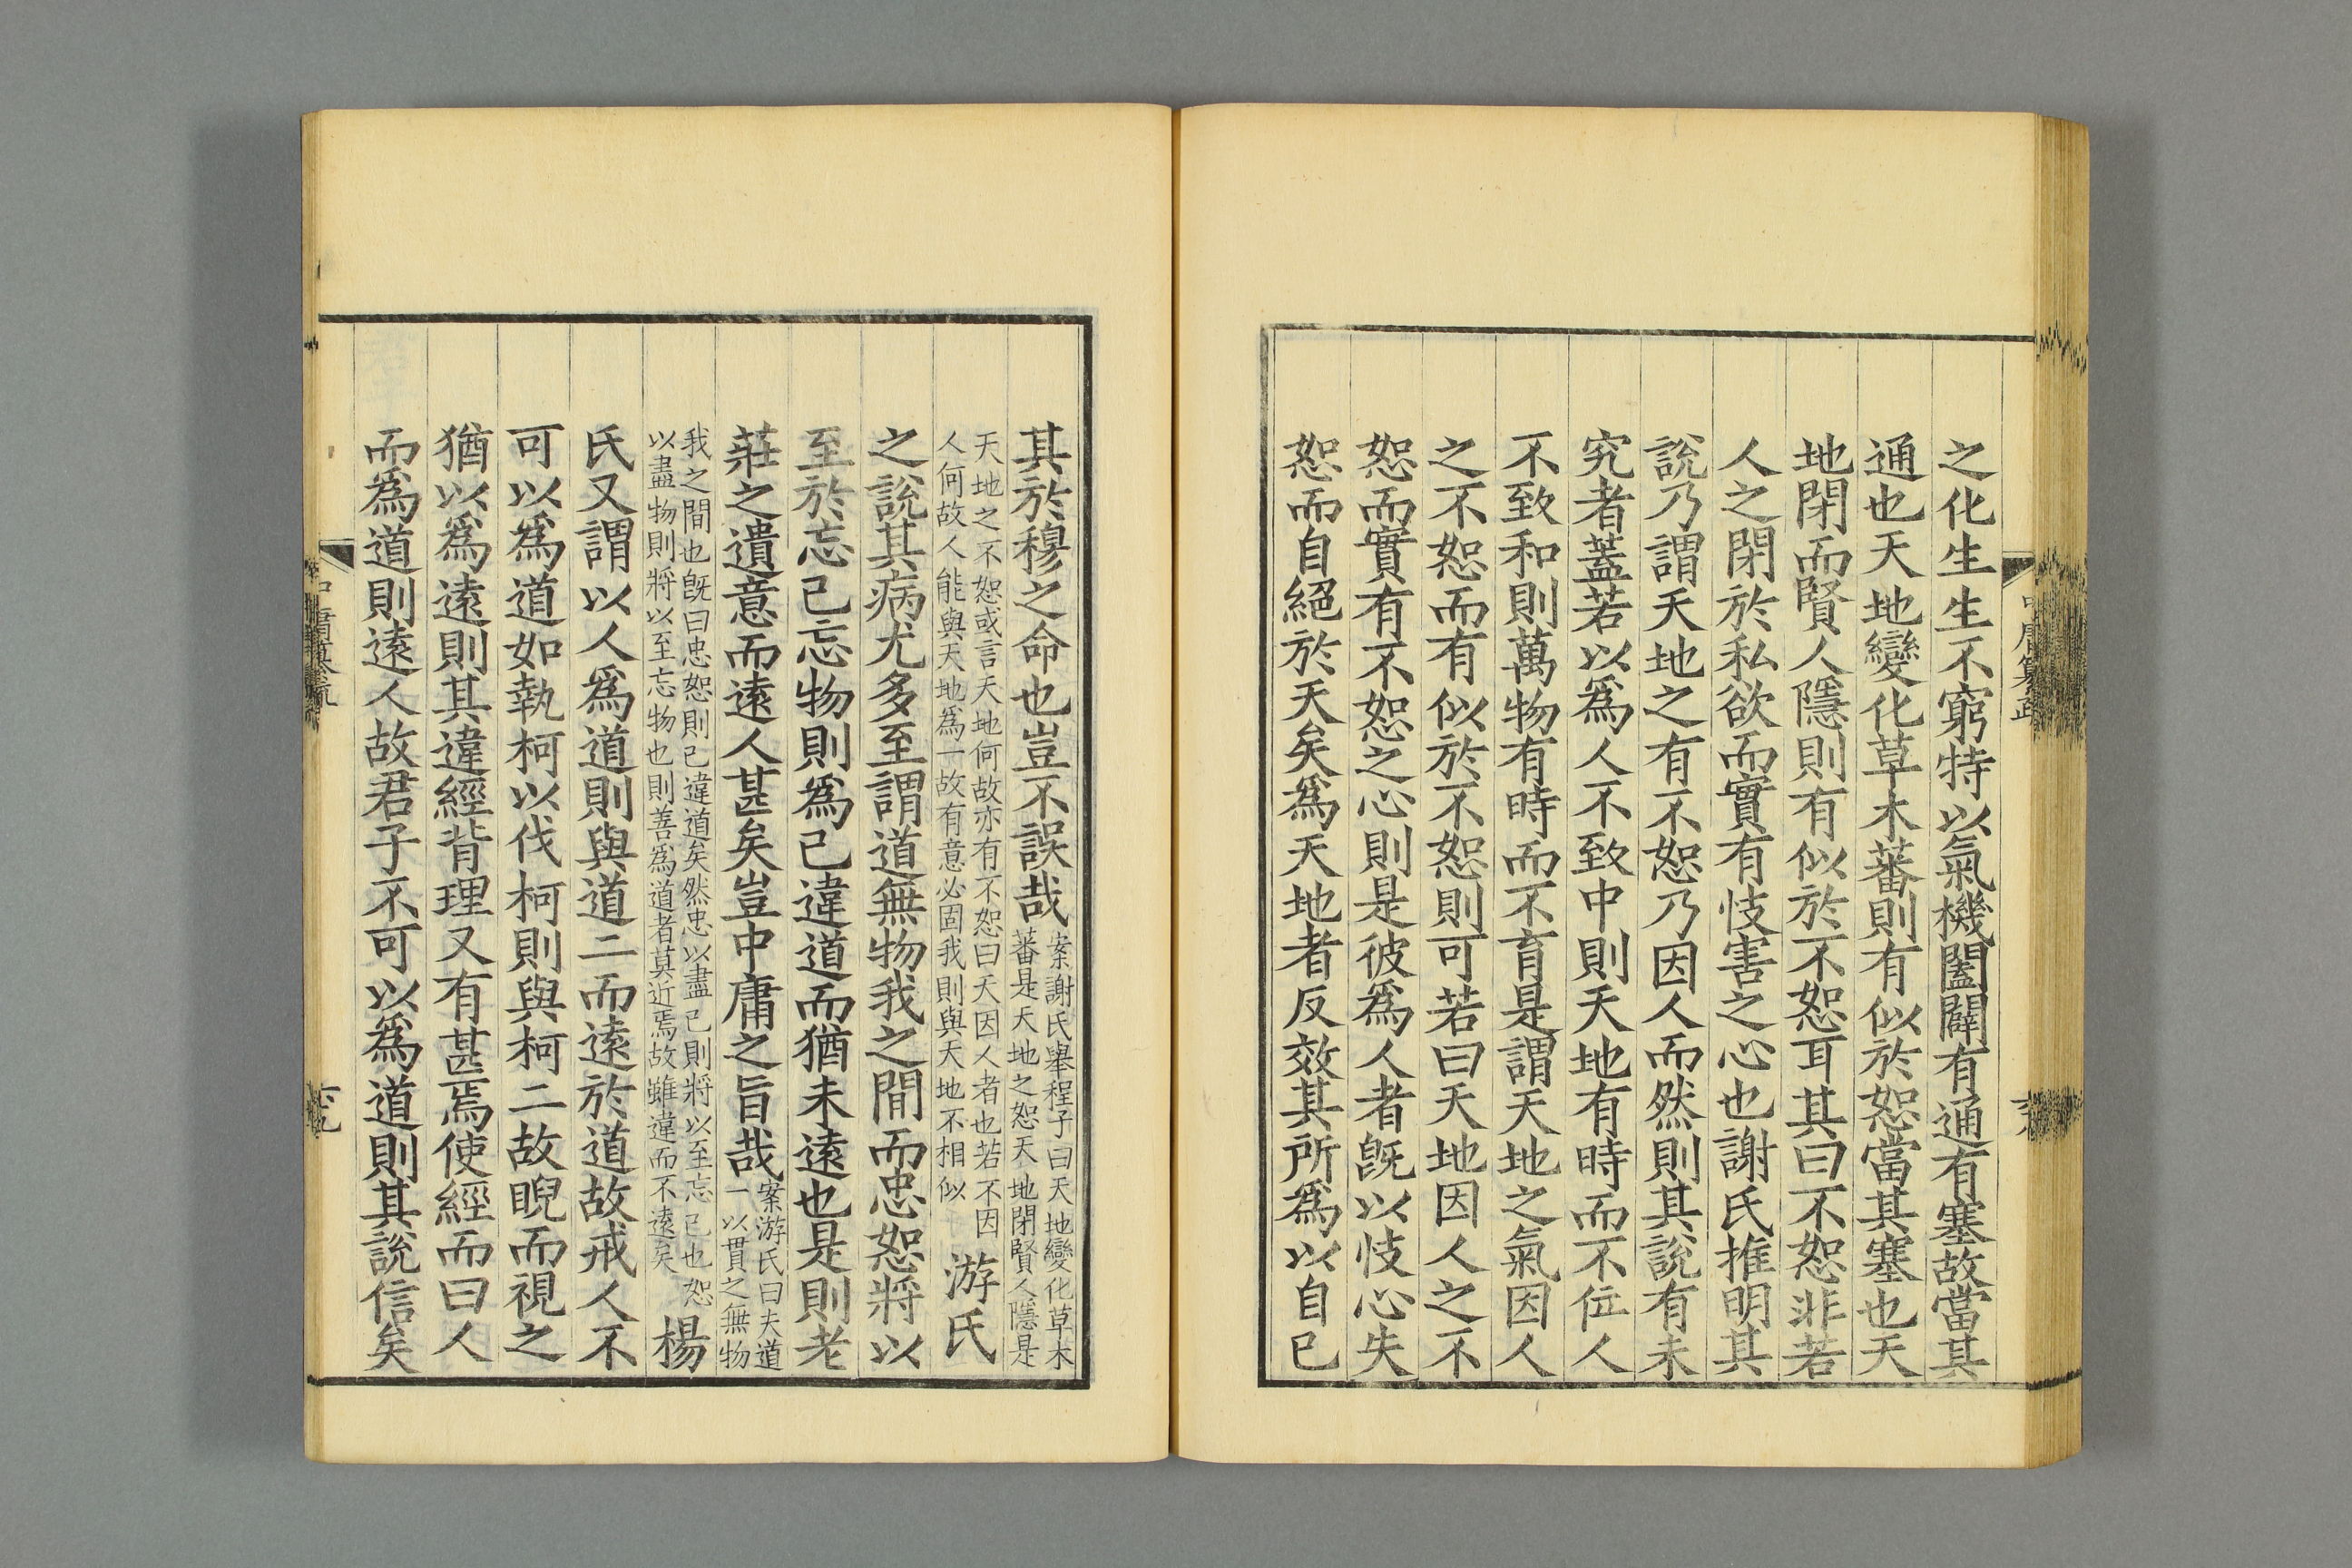 之化生生不窮特以氣機闔闢有通有塞故當其
通也天地變化草木蕃則有似於恕當其塞也天
地閉而賢人隱則有似於不恕耳其曰不恕非若
人之閉於私欲而實有忮害之心也謝氏推明其
說乃謂天地之有不恕乃因人而然則其說有未
究者蓋若以爲人不致中則天地有時而不位人
不致和則萬物有時而不育是謂天地之氣因人
之不恕而有似於不恕則可若曰天地因人之不
恕而實有不恕之心則是彼爲人者旣以忮心失
恕而自絕於天矣爲天地者反效其所爲以自已
其於穆之命也豈不誤哉
案謝氏舉程子曰天地變化草木
蕃是天地之恕天地閉賢人隱是
天地之不恕或言天地何故亦有不恕曰天因人者也若不因
人何故人能與天地爲一故有意必固我則與天地不相似
游氏
之說其病尤多至謂道無物我之間而忠恕將以
至於忘己忘物則爲已違道而猶未遠也是則老
莊之遺意而遠人甚矣豈中庸之旨哉
案游氏曰夫道
一以貫之無物
我之間也旣曰忠恕則已違道矣然忠以盡己則將以至忘己也恕
以盡物則將以至忘物也則善爲道者莫近焉故雖違而不遠矣
楊
氏又謂以人爲道則與道二而遠於道故戒人不
可以爲道如執柯以伐柯則與柯二故睨而視之
猶以爲遠則其違經背理又有甚焉使經而曰人
而爲道則遠人故君子不可以爲道則其說信矣